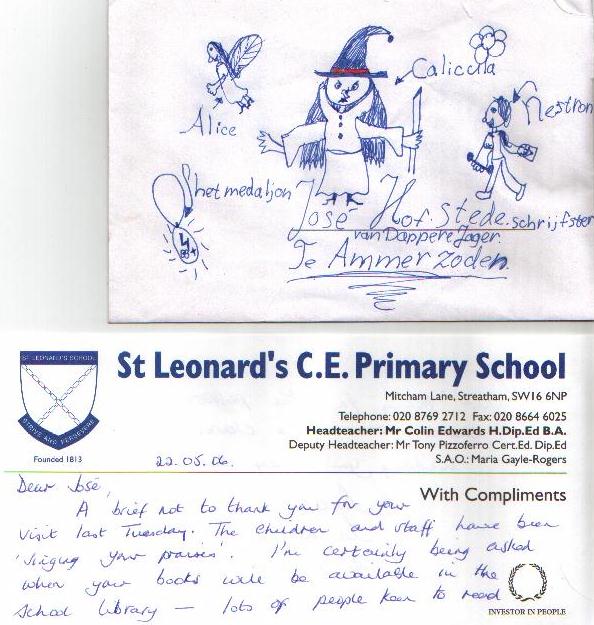 Calicula
Alice
Nestron
het medaljon
José Hof. Stede. schrijfster
van Dappere Jager.
Te Ammerzoden.
ST LEONARD'S SCHOOL
STRIVE AND PERSEVERE
Founded 1813
St Leonard's C.E. Primary School
Mitcham Lane, Streatham, SW16 6NP
Telephone: 020 8769 2712 Fax: 020 8664 6025
Headteacher: Mr Colin Edwards H.Dip.Ed B.A.
Deputy Headteacher: Mr Tony Pizzoferro Cert.Ed. Dip.Ed
S.A.O.: Maria Gayle-Rogers
22.05.06.
With Compliments
Dear José,
A brief not to thank you for your
visit last Tuesday. The children and staff have been
'singing your praises'. I'm certainly being asked
when your books will be available in the
school library — lots of people keen to read
INVESTOR IN PEOPLE